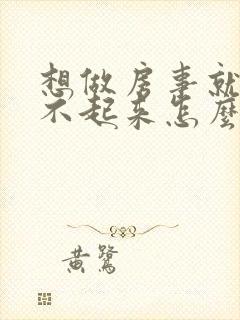 想做房事就
不起来怎麼
黄鷺